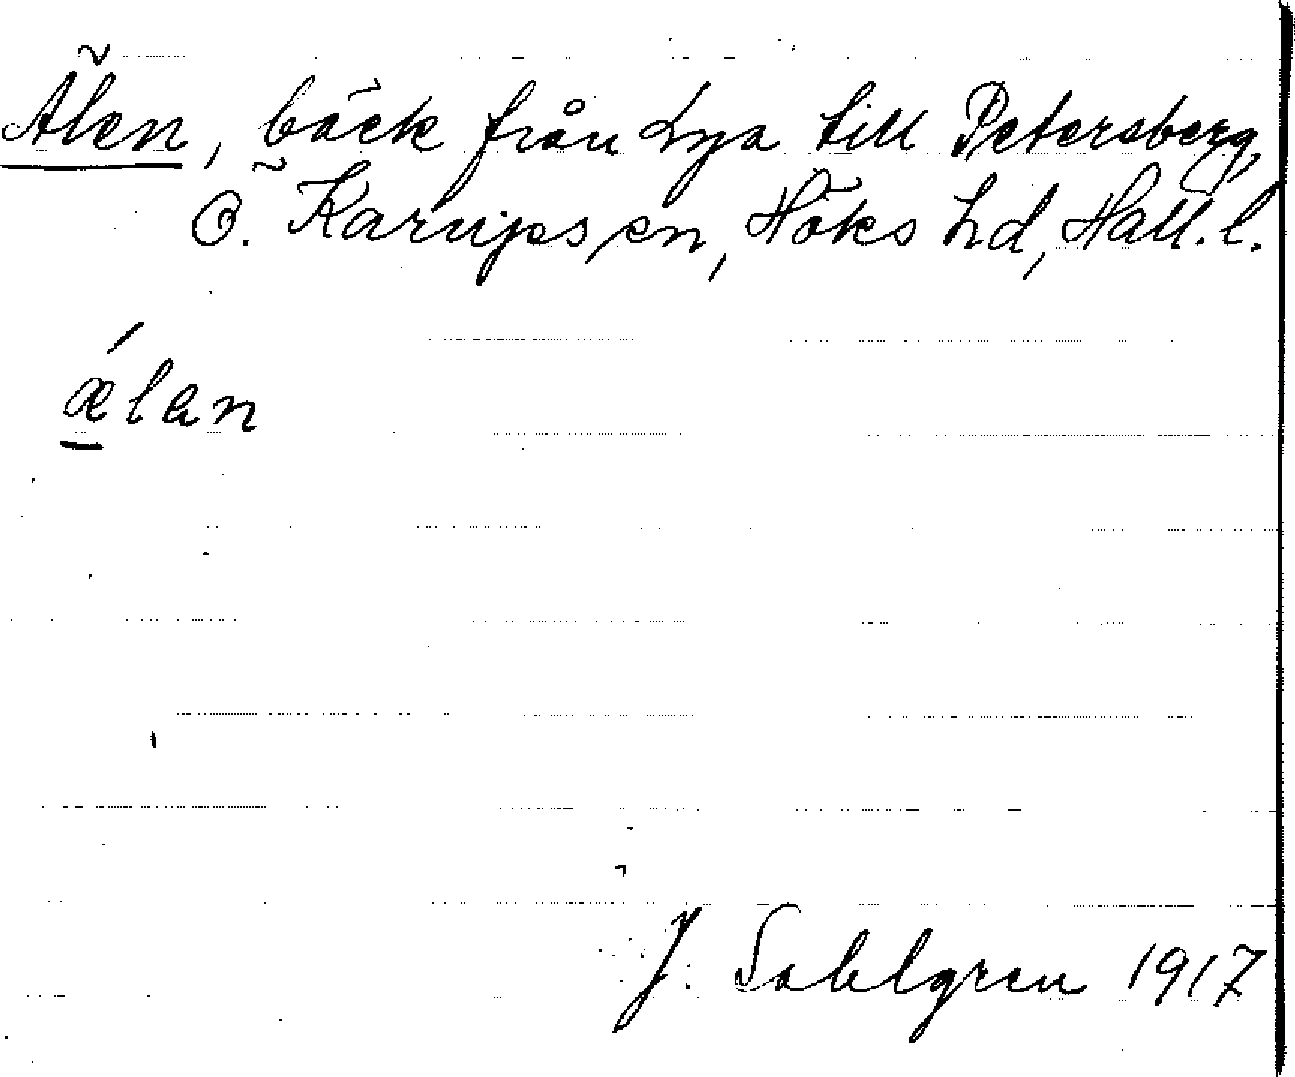 Älen, bäck från Lya till Petersberg,
Ö. Karups sn, Höks hd, Hall. l.
ǽlan
J. Sahlgren 1917